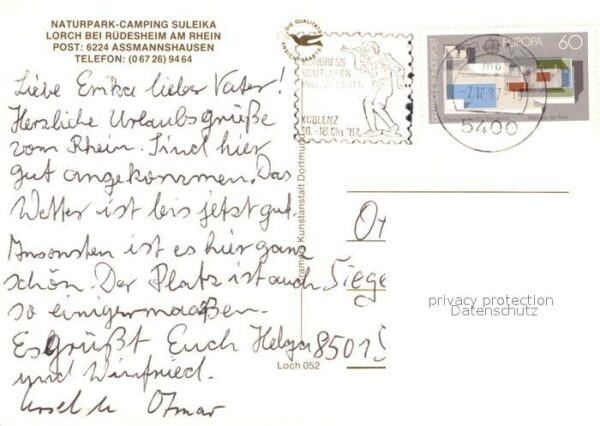 NATURPARK-CAMPING SULEIKA
LORCH BEI RÜDESHEIM AM RHEIN
POST: 6224 ASSMANNSHAUSEN
TELEFON: (0 67 26) 94 64
Liebe Erika lieber Vater!
Herzliche Urlaubsgrüße
vom Rhein. Sind hier
gut angekommen. Das
Wetter ist bis jetzt gut.
Ansonsten ist es hier ganz
schön. Der Platz ist auch
so einigermaaßen.
Es grüßt Euch Helga
und Winfried.
Otmar
DIE QUALITÄTS
ANSICHTSKARTE
KONGRESS
DEUTSCHER
KOBLENZ
16.-18. Okt. '87
EUROPA 60
DEUTSCHE BUNDESPOST
5400
Kunstanstalt Dortmund
Loch 052
Ot
Siege
8501
privacy protection
Datenschutz